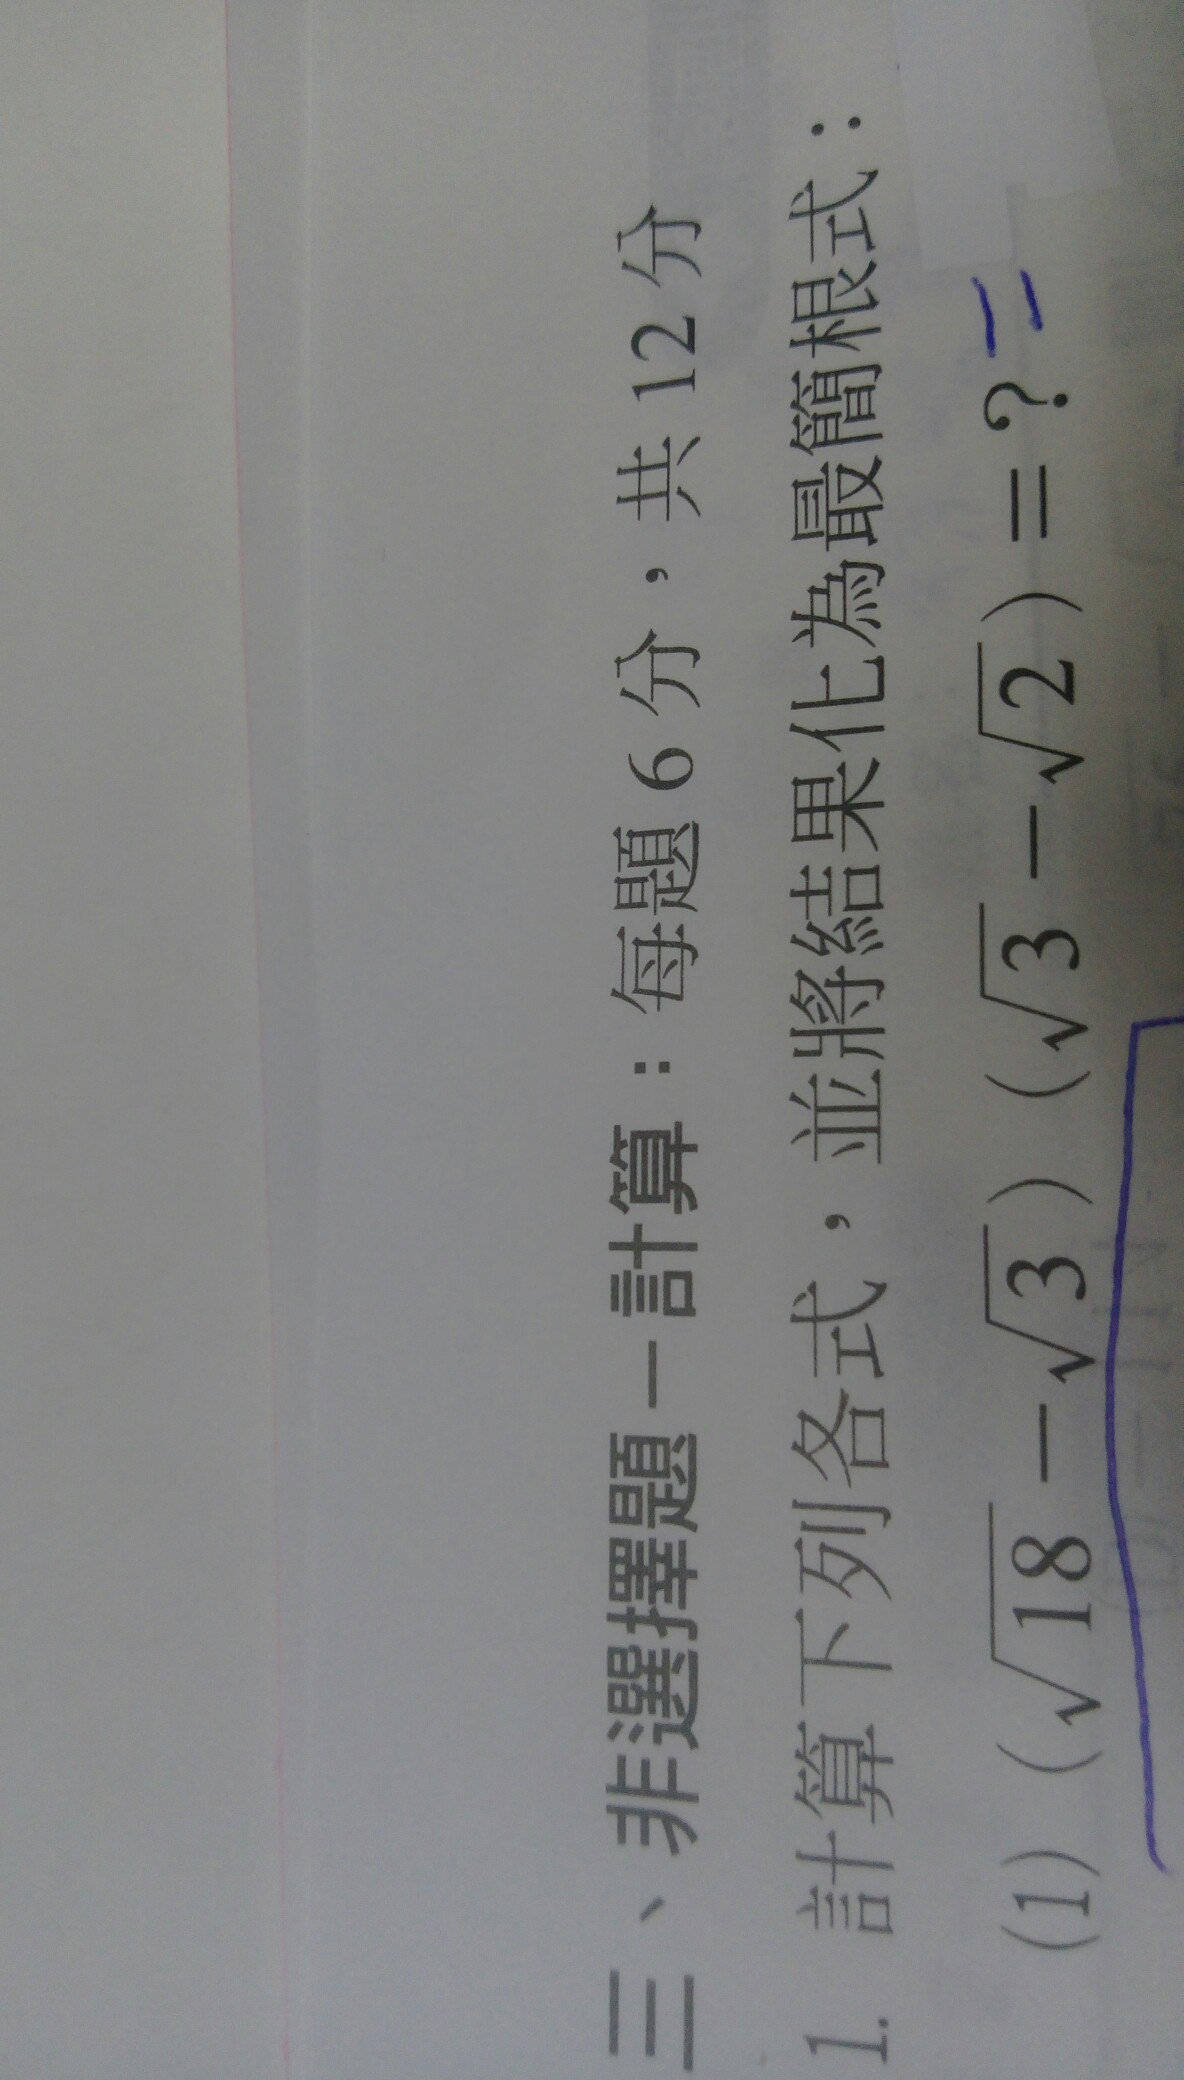 三、非選擇題－計算：每題 6 分，共 12 分
1. 計算下列各式，並將結果化為最簡根式：
(1) (√18 － √3) (√3 － √2) = ? =